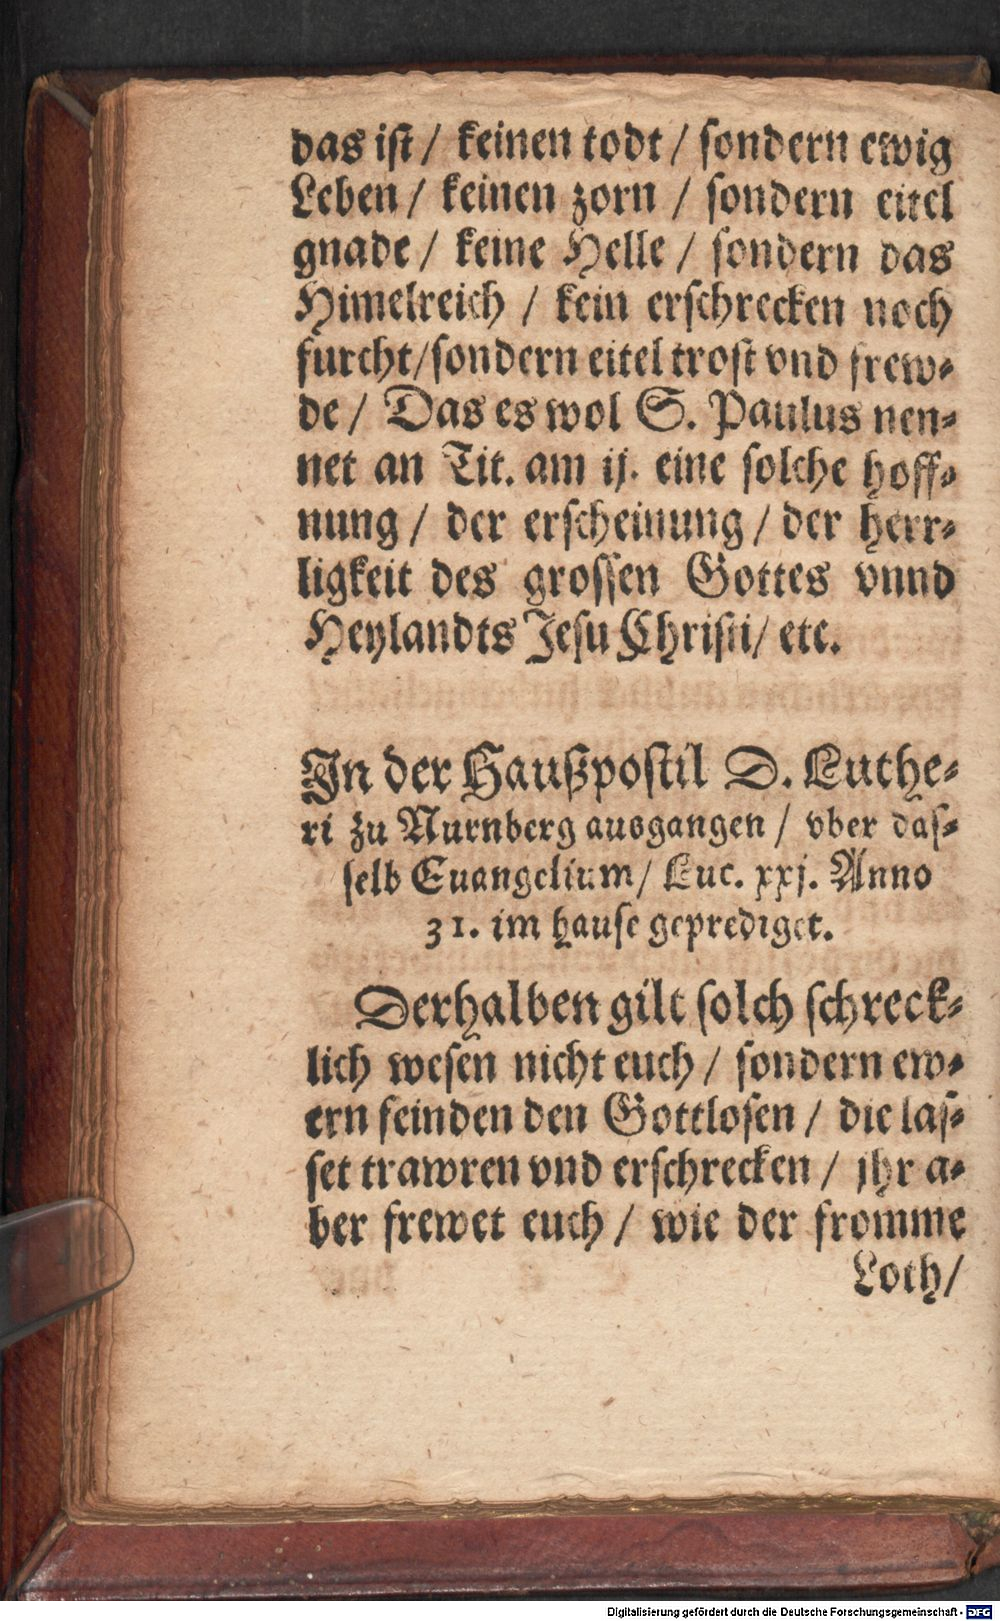 das ist / keinen todt / sondern ewig
Leben / keinen zorn / sondern eitel
gnade / keine Helle / sondern das
Himelreich / kein erschrecken noch
furcht / sondern eitel trost vnd frew-
de / Das es wol S. Paulus nen-
net an Tit. am ij. eine solche hoff-
nung / der erscheinung / der herr-
ligkeit des grossen Gottes vnnd
Heylandts Jesu Christi / etc.
In der Haußpostil D. Luthe-
ri zu Nurnberg ausgangen / vber das-
selb Euangelium / Luc. xxj. Anno
31. im hause geprediget.
Derhalben gilt solch schreck-
lich wesen nicht euch / sondern ew-
ern feinden den Gottlosen / die las-
set trawren vnd erschrecken / jhr a-
ber frewet euch / wie der fromme
Loth /
Digitalisierung gefördert durch die Deutsche Forschungsgemeinschaft - DFG